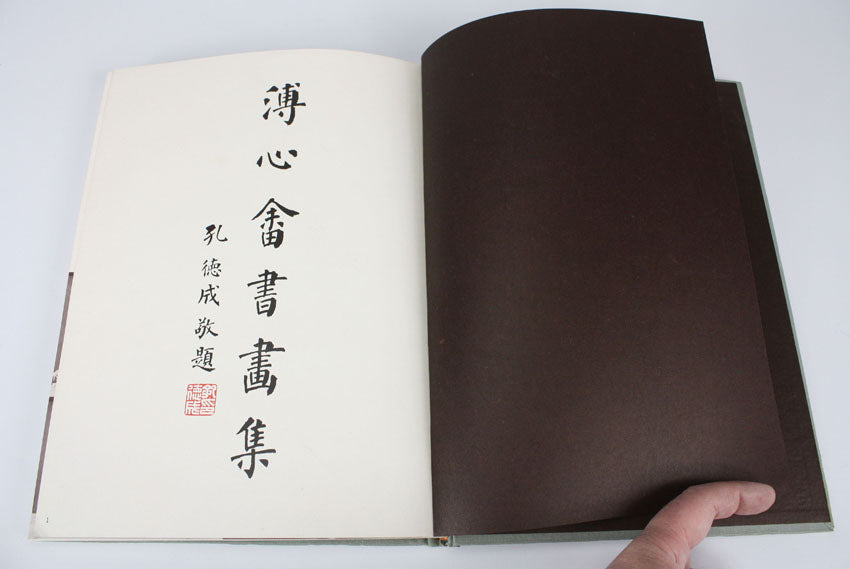 溥心畬書畫集
孔德成敬題
1